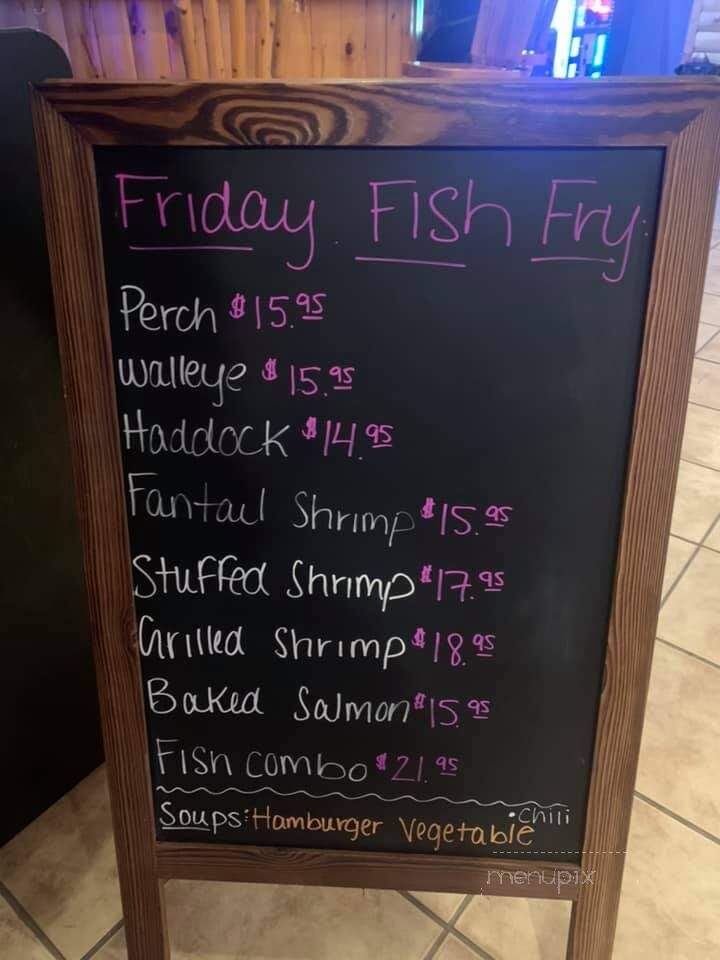 Friday Fish Fry
Perch $15.95
Walleye $15.95
Haddock $14.95
Fantail Shrimp $15.95
Stuffed Shrimp $17.95
Grilled Shrimp $18.95
Baked Salmon $15.95
Fish combo $21.95
•Chili
Soups: Hamburger Vegetable
menupix